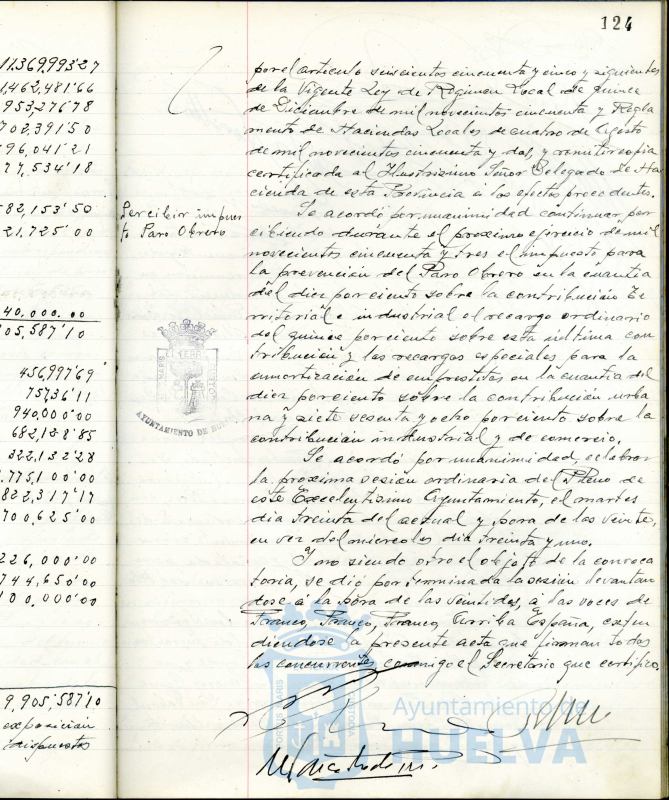 124
11.369,993'27
1,462,481'66
953,276'78
702,391'50
196,041'21
77,534'18
582,153'50
21.725'00
40,000.00
05,587'10
456,997'69
7573,6'11
940,000'00
682,128'85
322,132'28
.775,100'00
822,317'17
700,625'00
226,000'00
744,650'00
100,000'00
9,905,587'10
exposición
dispuestos
Percibir impues
to Paro Obrero
AYUNTAMIENTO DE HUELVA
por el artículo seiscientos cincuenta y cinco y siguientes
de la Vigente Ley de Régimen Local de quince
de Diciembre de mil novecientos cincuenta y Regla
mento de Haciendas Locales de cuatro de Agosto
de mil novecientos cincuenta y dos, y remitir copia
certificada al Ilustrísimo Señor Delegado de Ha
cienda de esta Provincia a los efectos procedentes.
Se acordó por unanimidad continuar per
cibiendo durante el proximo ejercicio de mil
novecientos cincuenta y tres el impuesto para
la prevención del Paro Obrero en la cuantia
del diez por ciento sobre la contribución Te
rritorial e industrial el recargo ordinario
del quince por ciento sobre esta última con
tribución y los recargos especiales para la
amortización de emprestitos en la cuantia del
diez por ciento sobre la contribución urba
na y siete sesenta y ocho por ciento sobre la
contribución industrial y de comercio.
Se acordó por unanimidad, celebrar
la proxima sesión ordinaria del Pleno de
este Excelentísimo Ayuntamiento, el martes
dia treinta del actual y hora de las veinte,
en vez del miercoles dia treinta y uno.
Y no siendo otro el objeto de la convoca
toria, se dió por terminada la sesión levantan
dose a la hora de las veintidos, a las voces de
Franco, Franco, Franco, Arriba España, exten
diendose la presente acta que firman todos
los concurrentes conmigo el Secretario que certifico.
Ayuntamiento de
HUELVA